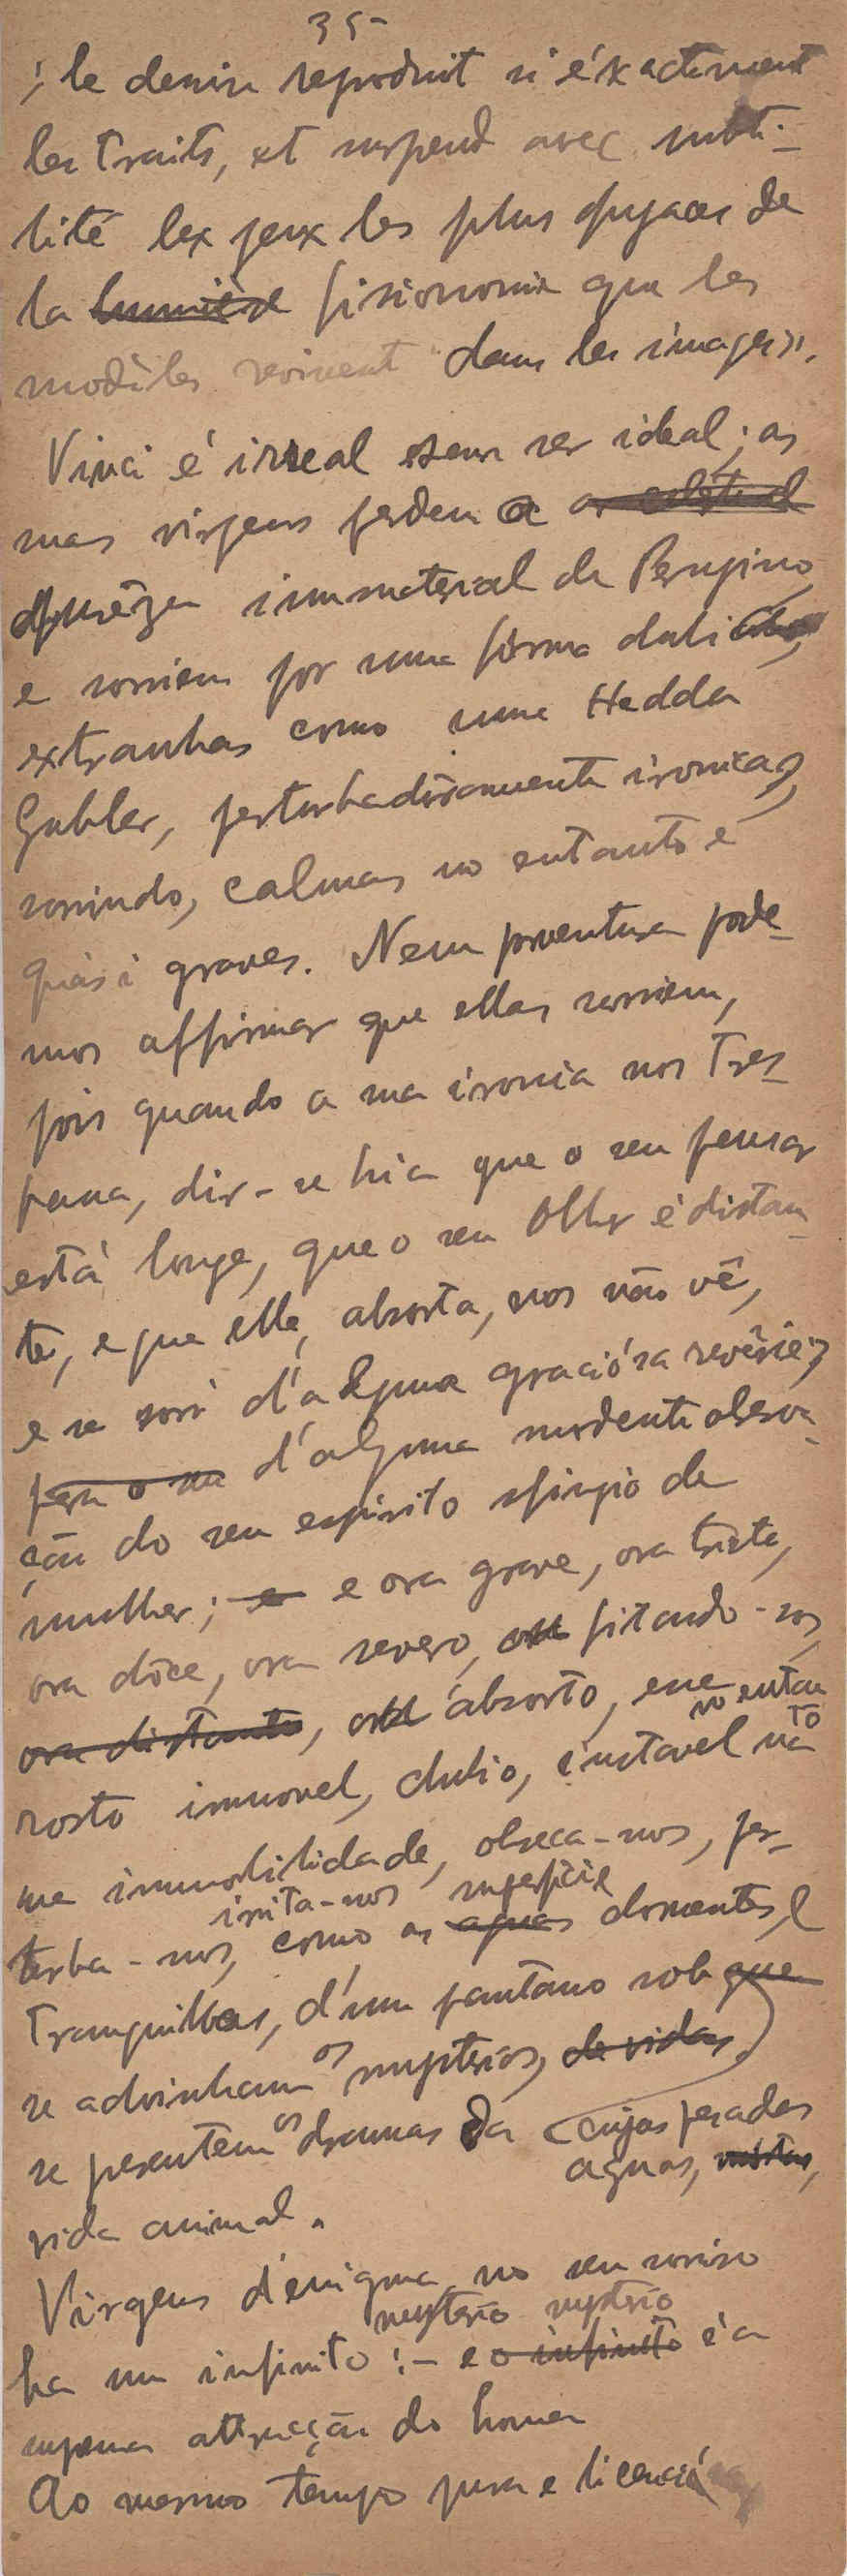 35-
; le dessin reproduit si éxactement
les traits, et suspend avec subti-
lité lex jeux les plus fugaces de
la lumière fisionomie que les
modèles revivent dans les images».
Vinci é irreal sem ser ideal; as
suas virgens perdem a
purêza immaterial de Perugino,
e sorriem por uma fórma dubia,
extranhas como uma Hedda
Gabler, perturbadôramente ironicas,
sorrindo, calmas no entanto e
quási graves. Nem porventura pode-
mos affirmar que ellas sorriem,
pois quando a sua ironia nos tres-
passa, dir-se hia que o seu pensar
está longe, que o seu olhar é distan-
te, e que ella, absorta, nos não vê,
e se sorri d'alguma graciósa revêrie,
para o seu d'alguma mordente observa-
ção do seu espirito sfingio de
mulher; e e ora grave, ora triste,
ora dôce, ora severo, ora fitando-nos,
ora distante, ora absorto, esse no entan
to
rosto immovel, dubio, instavel na
sua immobilidade, obseca-nos, per-
irrita-nos superficie
turba-nos, como as aguas dormentes, e
tranquillas, d'um pantano sob que
se advinham os mysterios, de vidas
se presentem os dramas da cujas pesadas
aguas,
vida animal.
Virgens d'enigma no seu sorriso
mysterio mysterio
ha um infinito :- e o infinito é a
suprema attracção do homem
Ao mesmo tempo pura e